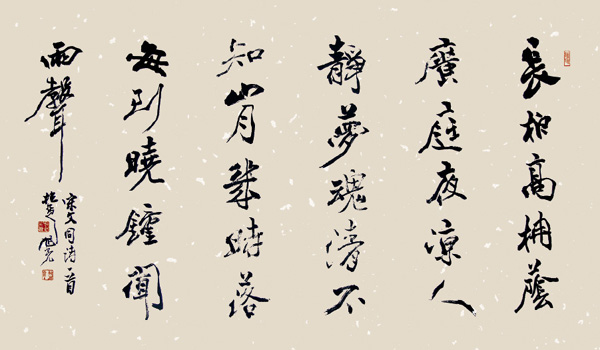 長柏高楠蔭
廣庭夜涼人
靜夢魂清不
知山月幾時落
每到曉鐘聞
雨聲
宋文同詩一首